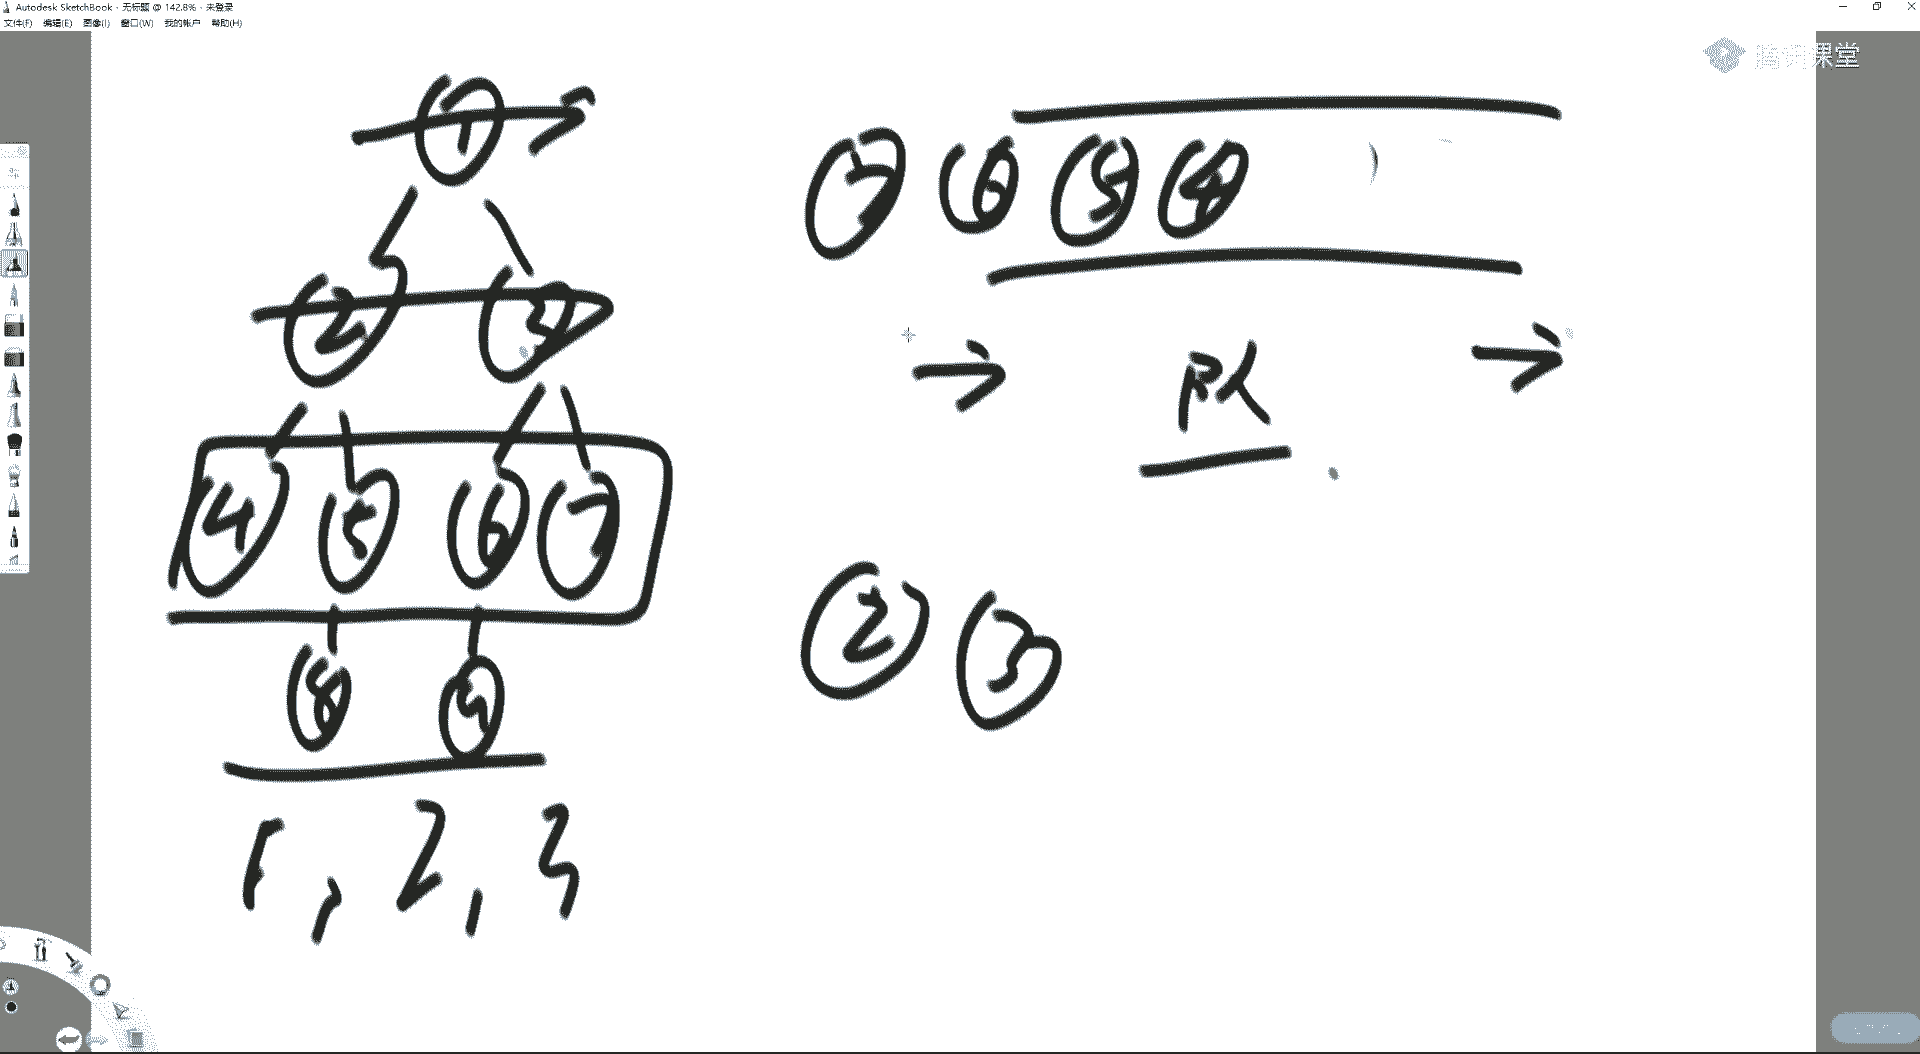 Autodesk SketchBook - 无标题 @ 142.8% - 未登录
文件(F) 编辑(E) 图像(I) 窗口(W) 我的帐户 帮助(H)
腾讯课堂
1
7 6 5 4
2 3
队
4 5 6 7
2 3
8 9
1, 2, 3